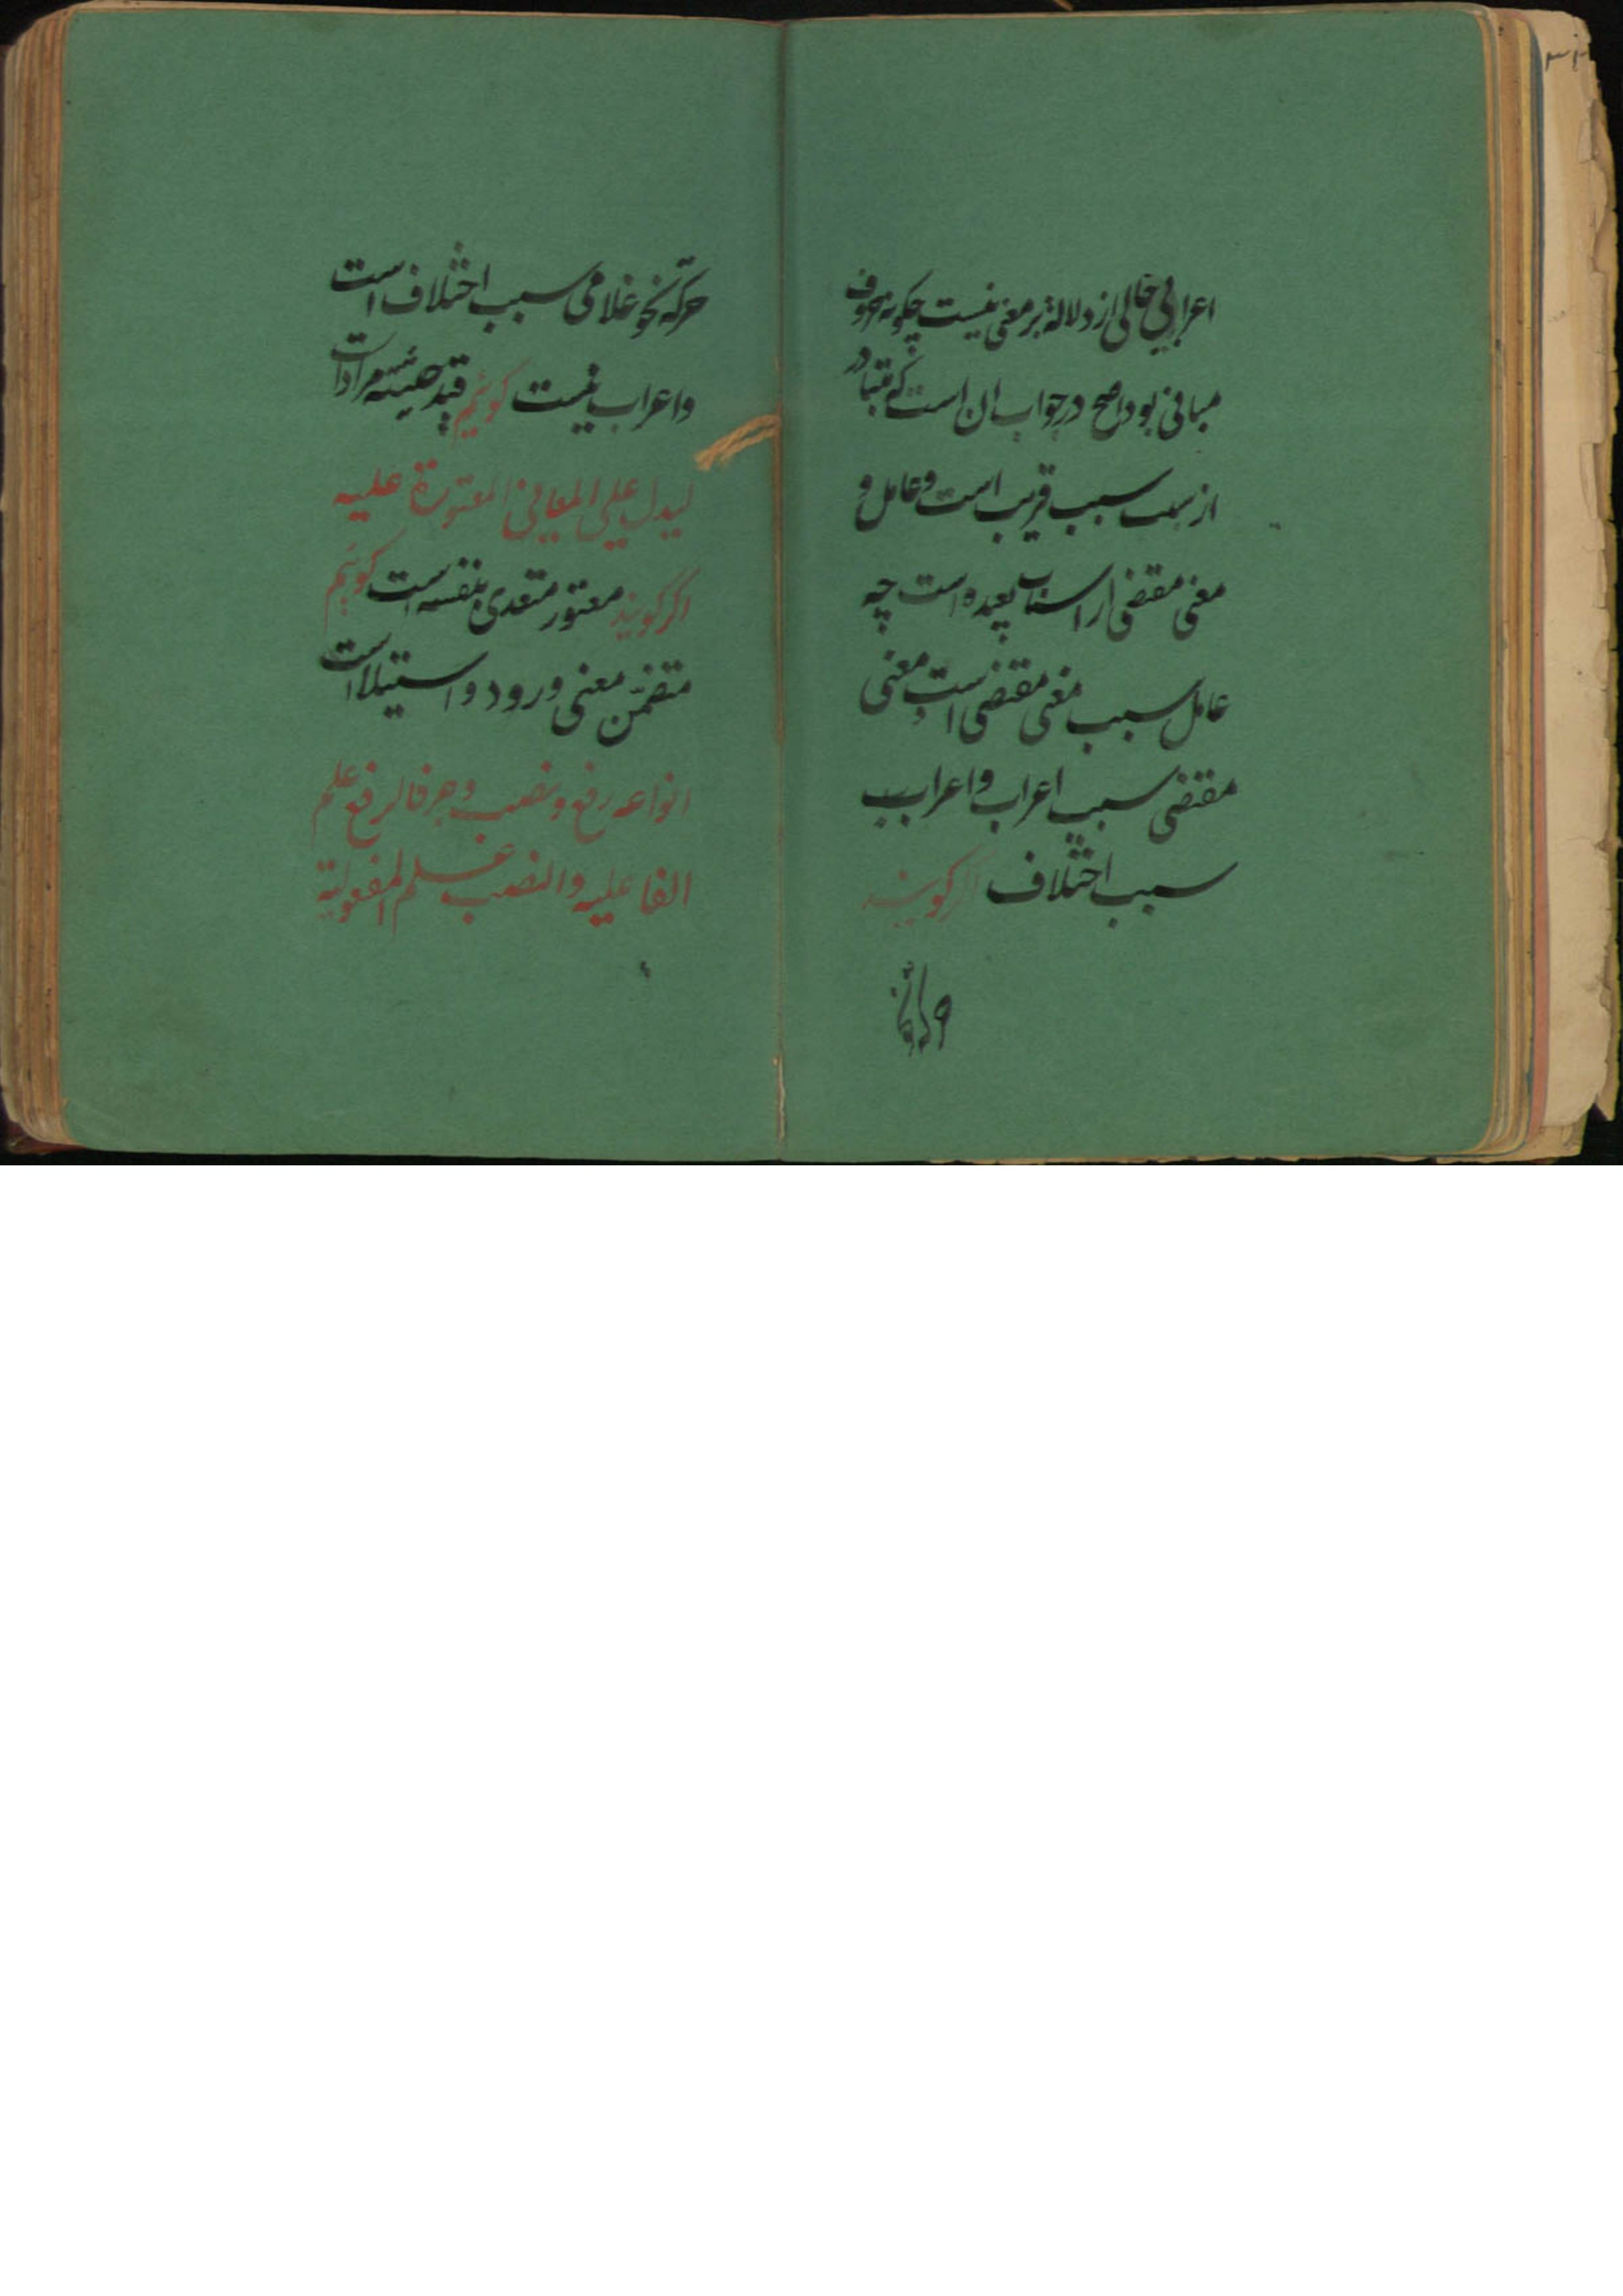 اعرابی خالی از دلالة بر معنی نیست چکونه حروف
مبانی بود اصح در جواب ان است که متبادر
از سبب سبب قریب است و عامل و
معنی مقتضی از اسباب بعیده است چه
عامل سبب معنی مقتضی است و معنی
مقتضی سبب اعراب و اعراب سبب
سبب اختلاف اکر کویند
حرکة نحو غلامی سبب اختلاف است
و اعراب نیست کوئیم قید حیثیته مراد است
لیدل علی المعانی المعتورة علیه
اکر کویند معتور متعدی بنفسه است کوئیم
متضمّن معنی ورود و استیلا است
انواعه رفع و نصب و جر فالرفع علم
الفاعلیه والنصب علم المفعولیة